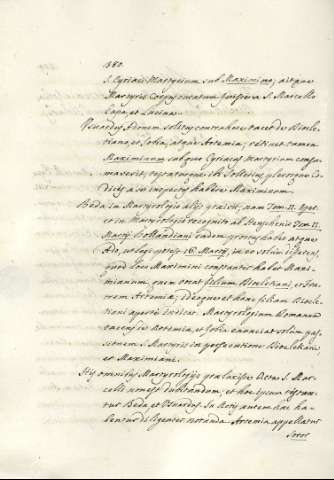 380.
S. Cyriaci Martyrium sub Maximino; atque
Martyris Corpus curatum fuisse a S. Marcello
Papa, et Lucina.
Usuardus Adonem solitus contrahere tacet de Diocle-
tiano, et Iobia, atque Artemia; retinet tamen
Maximianum sub quo Cyriacus Martyrium consu-
maverit, testaturque ibi Sollerius plerosque Co-
dices a se inspectos habere Maximinum.
Beda in Martyrologio alijs præivit; nam Tom. II.
in Martyrologio recognito ab Henschenio Tom. II.
Martij Bollandiani eadem prorsus habet atque
Ado, ut legi potest 16. Martij, in eo solum
quod loco Maximini constanter habet Maxi-
mianum, quem vocat filium Diocletiani, et fra-
trem Artemiæ; ideoque et hanc filiam Diocle-
tiani aperte indicat. Martyrologium Romanum
tacens de Artemia, et Iobia enunciat solum pas-
sionem Martyris in persecutione Diocletiani,
et Maximiani.
His omnibus Martyrologijs præluxisse Acta S. Mar-
celli non est dubitandum, et hoc ipsum
tur Beda et Usuardus. In Actis autem hæc ha-
bentur diligenter notanda. Artemia appellatur
Soror